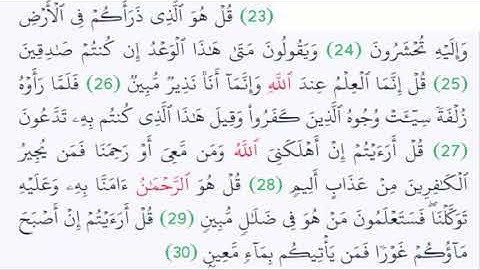 (23) قُلْ هُوَ ٱلَّذِى ذَرَأَكُمْ فِى ٱلْأَرْضِ
وَإِلَيْهِ تُحْشَرُونَ (24) وَيَقُولُونَ مَتَىٰ هَـٰذَا ٱلْوَعْدُ إِن كُنتُمْ صَـٰدِقِينَ
(25) قُلْ إِنَّمَا ٱلْعِلْمُ عِندَ ٱللَّهِ وَإِنَّمَآ أَنَا۠ نَذِيرٌ مُّبِينٌ (26) فَلَمَّا رَأَوْهُ
زُلْفَةً سِيٓـَٔتْ وُجُوهُ ٱلَّذِينَ كَفَرُوا۟ وَقِيلَ هَـٰذَا ٱلَّذِى كُنتُم بِهِۦ تَدَّعُونَ
(27) قُلْ أَرَءَيْتُمْ إِنْ أَهْلَكَنِىَ ٱللَّهُ وَمَن مَّعِىَ أَوْ رَحِمَنَا فَمَن يُجِيرُ
ٱلْكَـٰفِرِينَ مِنْ عَذَابٍ أَلِيمٍ (28) قُلْ هُوَ ٱلرَّحْمَـٰنُ ءَامَنَّا بِهِۦ وَعَلَيْهِ
تَوَكَّلْنَا ۖ فَسَتَعْلَمُونَ مَنْ هُوَ فِى ضَلَـٰلٍ مُّبِينٍ (29) قُلْ أَرَءَيْتُمْ إِنْ أَصْبَحَ
مَآؤُكُمْ غَوْرًا فَمَن يَأْتِيكُم بِمَآءٍ مَّعِينٍۭ (30)